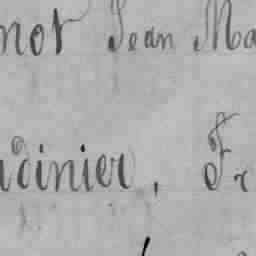 not Jean Ma
icinier, Fr